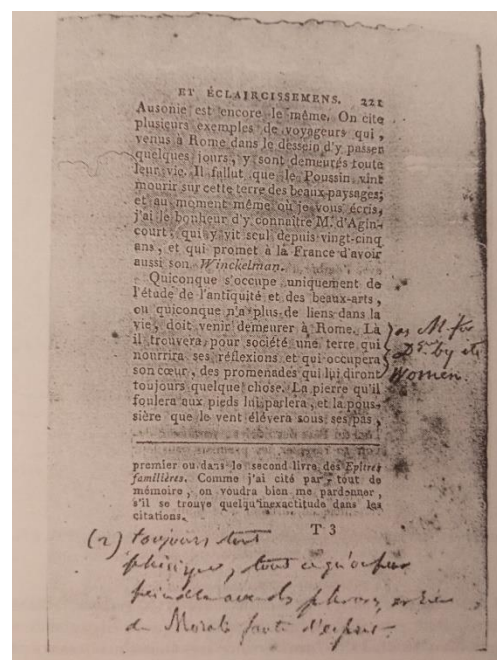 ET ÉCLAIRCISSEMENS. 221
Ausonie est encore le même. On cite
plusieurs exemples de voyageurs qui,
venus à Rome dans le dessein d'y passer
quelques jours, y sont demeurés toute
leur vie. Il fallut que le Poussin vint
mourir sur cette terre des beaux paysages;
et au moment même où je vous écris,
j'ai le bonheur d'y connaître M. d'Agin-
court, qui y vit seul depuis vingt-cinq
ans, et qui promet à la France d'avoir
aussi son Winckelman.
Quiconque s'occupe uniquement de
l'étude de l'antiquité et des beaux-arts,
ou quiconque n'a plus de liens dans la
vie, doit venir demeurer à Rome. Là
il trouvera pour société une terre qui
nourrira ses réflexions et qui occupera
son cœur, des promenades qui lui diront
toujours quelque chose. La pierre qu'il
foulera aux pieds lui parlera, et la pous-
sière que le vent élèvera sous ses pas,
as
by
Women
premier ou dans le second livre des Epîtres
familières. Comme j'ai cité par-tout de
mémoire, on voudra bien me pardonner,
s'il se trouve quelqu'inexactitude dans les
citations.
T 3
(2) toujours tout
tout ce
peindre avec des phrases,
de Morale faute d'esprit.